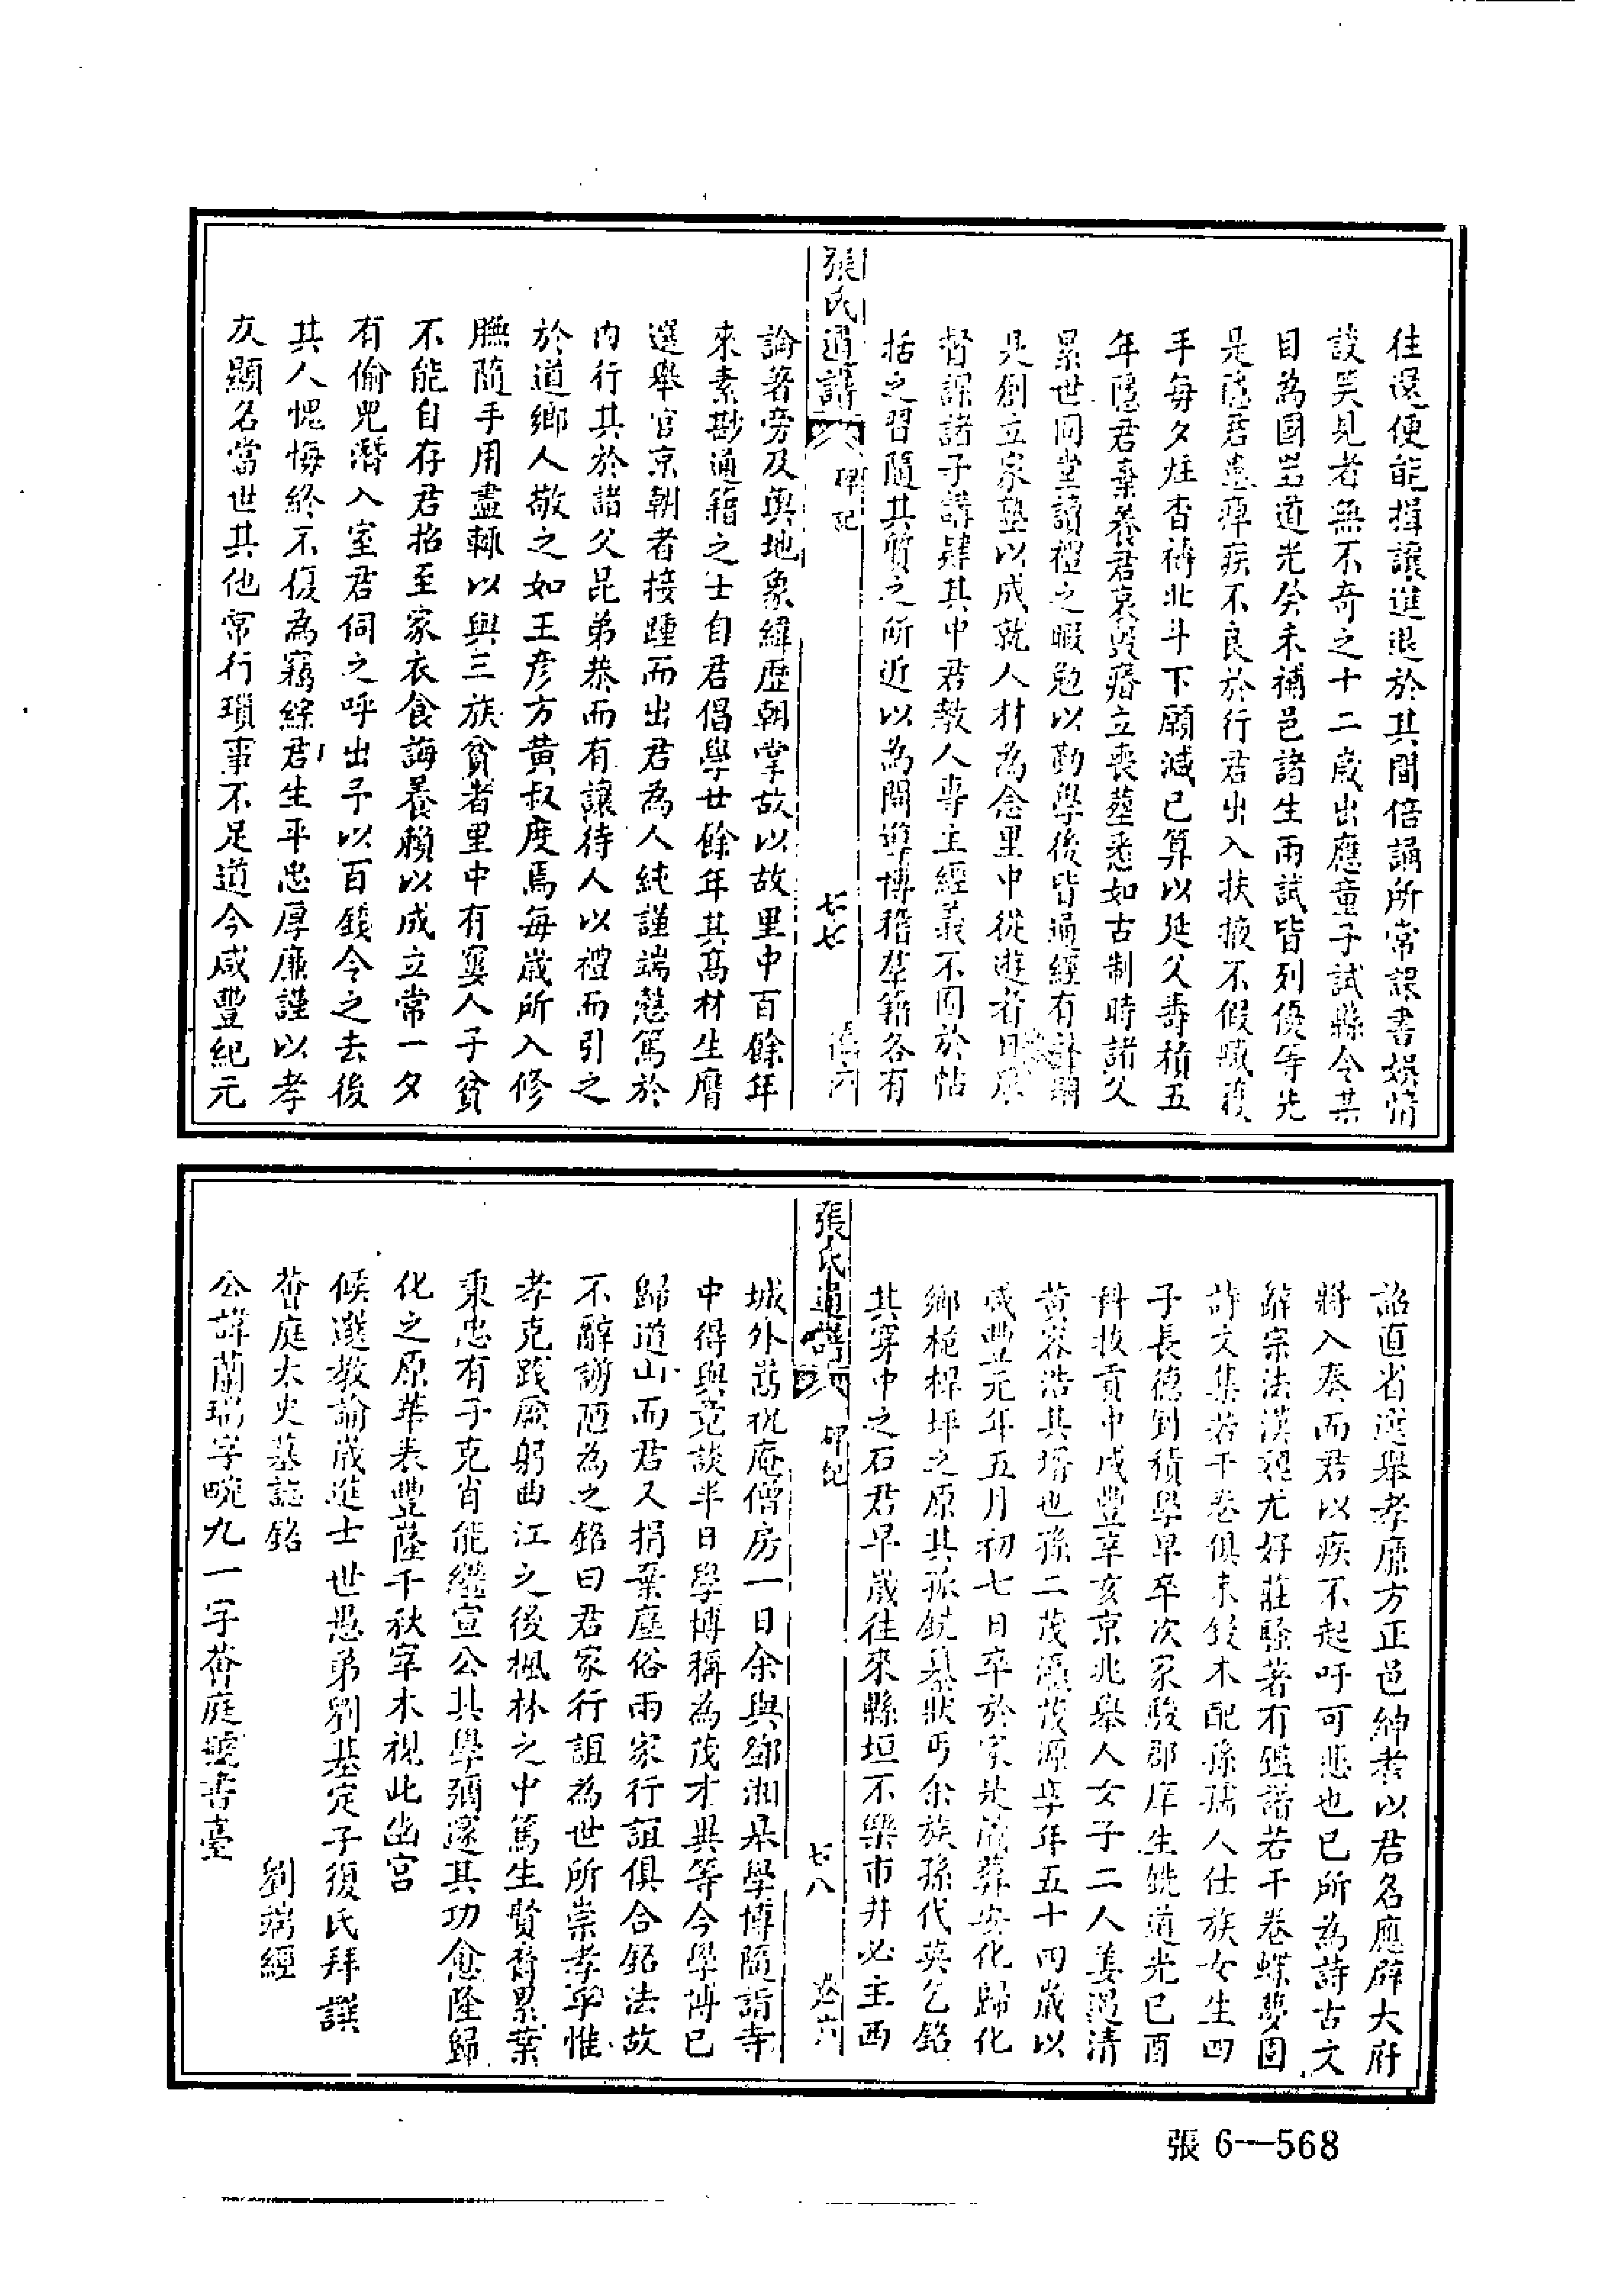 往還便能揖讓進退於其間倍誦所常課書娛情
談笑見者無不奇之十二歲出應童子試縣令某
目為國器道光癸未補邑諸生兩試皆列優等先
是隱君患痺疾不良於行君出入扶掖不假臧獲
手每夕炷香禱北斗下願減己算以延父壽積五
年隱君棄養君哀毀瘠立喪塟悉如古制時諸父
累世同堂讀禮之暇勉以勤學後皆通經有
是創立家塾以成就人材為念里中從遊者日
督課諸子講肄其中君教人專主經義不囿於帖
括之習隨其質之所近以為開導博稽羣籍各有
張氏通譜 碑記 七七 卷六
論著旁及輿地象緯歷朝掌故以故里中百餘年
來素尠通籍之士自君倡學廿餘年其高材生膺
選舉官京朝者接踵而出君為人純謹端慤篤於
內行其於諸父昆弟恭而有讓待人以禮而引之
於道鄉人敬之如王彥方黃叔度焉每歲所入修
膴隨手用盡輒以與三族貧者里中有窶人子貧
不能自存君招至家衣食誨養賴以成立常一夕
有偷兒潛入室君伺之呼出予以百錢令之去後
其人愧悔終不復為竊綜君生平忠厚廉謹以孝
友顯名當世其他常行瑣事不足道今咸豐紀元
詔直省選舉孝廉方正邑紳耆以君名應辟大府
將入奏而君以疾不起吁可悲也已所為詩古文
辭宗法漢魏尤好莊騷著有鑑譜若干卷蝶夢園
詩文集若干卷俱未鋟木配孫孺人仕族女生四
子長德劍積學早卒次家駿郡庠生銑道光己酉
科拔貢中咸豐辛亥京兆舉人女子二人姜遇清
黃容浩其壻也孫二茂瀛茂源享年五十四歲以
咸豐元年五月初七日卒於家是歲葬安化歸化
鄉桅桿坪之原其孤銑纂狀丐余族孫代英乞銘
其穿中之石君早歲往來縣垣不樂市井必主西
張氏通譜 碑記 七八 卷六
城外嵩祝庵僧房一日余與鄧湘皋學博隨詣寺
中得與竟談半日學博稱為茂才異等今學博已
歸道山而君又捐棄塵俗兩家行誼俱合銘法故
不辭謭陋為之銘曰君家行誼為世所崇孝乎惟
孝克踐厥躬曲江之後楓林之中篤生賢裔累葉
秉忠有子克肖能繼宣公其學彌邃其功愈隆歸
化之原華表豐隆千秋宰木視此幽宮
候選教諭歲進士世愚弟劉基定子復氏拜譔
薈庭太史墓誌銘 劉端經
公諱蘭瑞字畹九一字薈庭號書臺
張 6—568